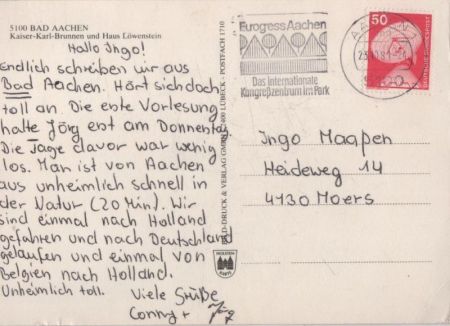 5100 BAD AACHEN
Kaiser-Karl-Brunnen und Haus Löwenstein
Hallo Ingo!
Endlich schreiben wir aus
Bad Aachen. Hört sich doch
toll an. Die erste Vorlesung
hatte Jörg erst am Donnerstag.
Die Tage davor war wenig
los. Man ist von Aachen
aus unheimlich schnell in
der Natur (20 Min). Wir
sind einmal nach Holland
gefahren und nach Deutschland
gelaufen und einmal von
Belgien nach Holland.
Unheimlich toll.
Viele Grüße
Conny + Jörg
BILD-DRUCK & VERLAG GMBH · 2400 LÜBECK · POSTFACH 1710
Eurogress Aachen
Das internationale
Kongreßzentrum im Park
50
DEUTSCHE BUNDESPOST
Ingo
Heideweg 14
4130 Moers